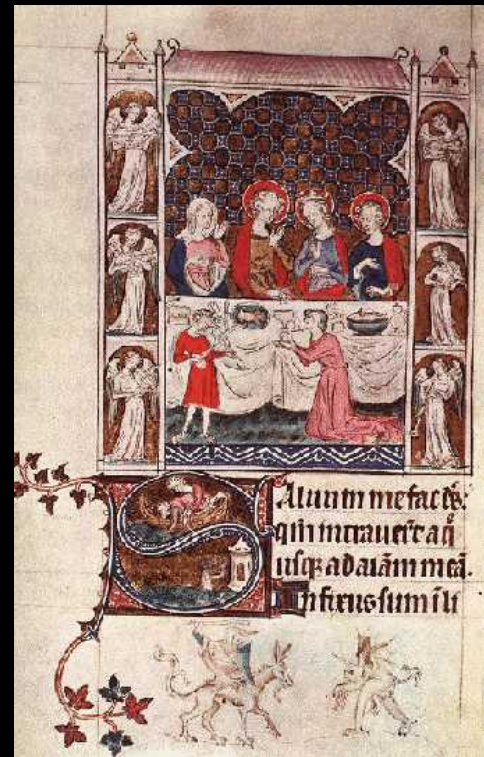 Aluum me fac ds:
qm intraverūt aq̄
usq; ad aīam meā.
Infixus sum ī li